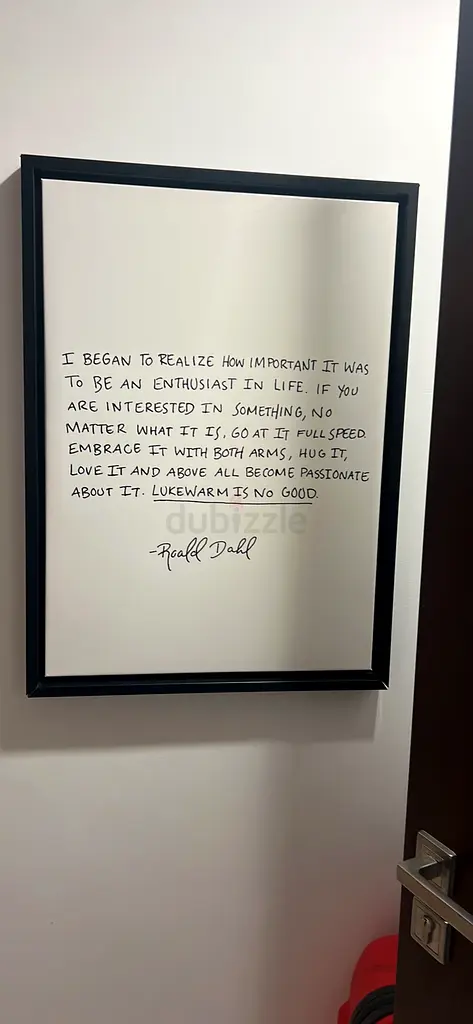 I BEGAN TO REALIZE HOW IMPORTANT IT WAS
TO BE AN ENTHUSIAST IN LIFE. IF YOU
ARE INTERESTED IN SOMETHING, NO
MATTER WHAT IT IS, GO AT IT FULL SPEED.
EMBRACE IT WITH BOTH ARMS, HUG IT,
LOVE IT AND ABOVE ALL BECOME PASSIONATE
ABOUT IT. LUKEWARM IS NO GOOD.
dubizzle
-Roald Dahl